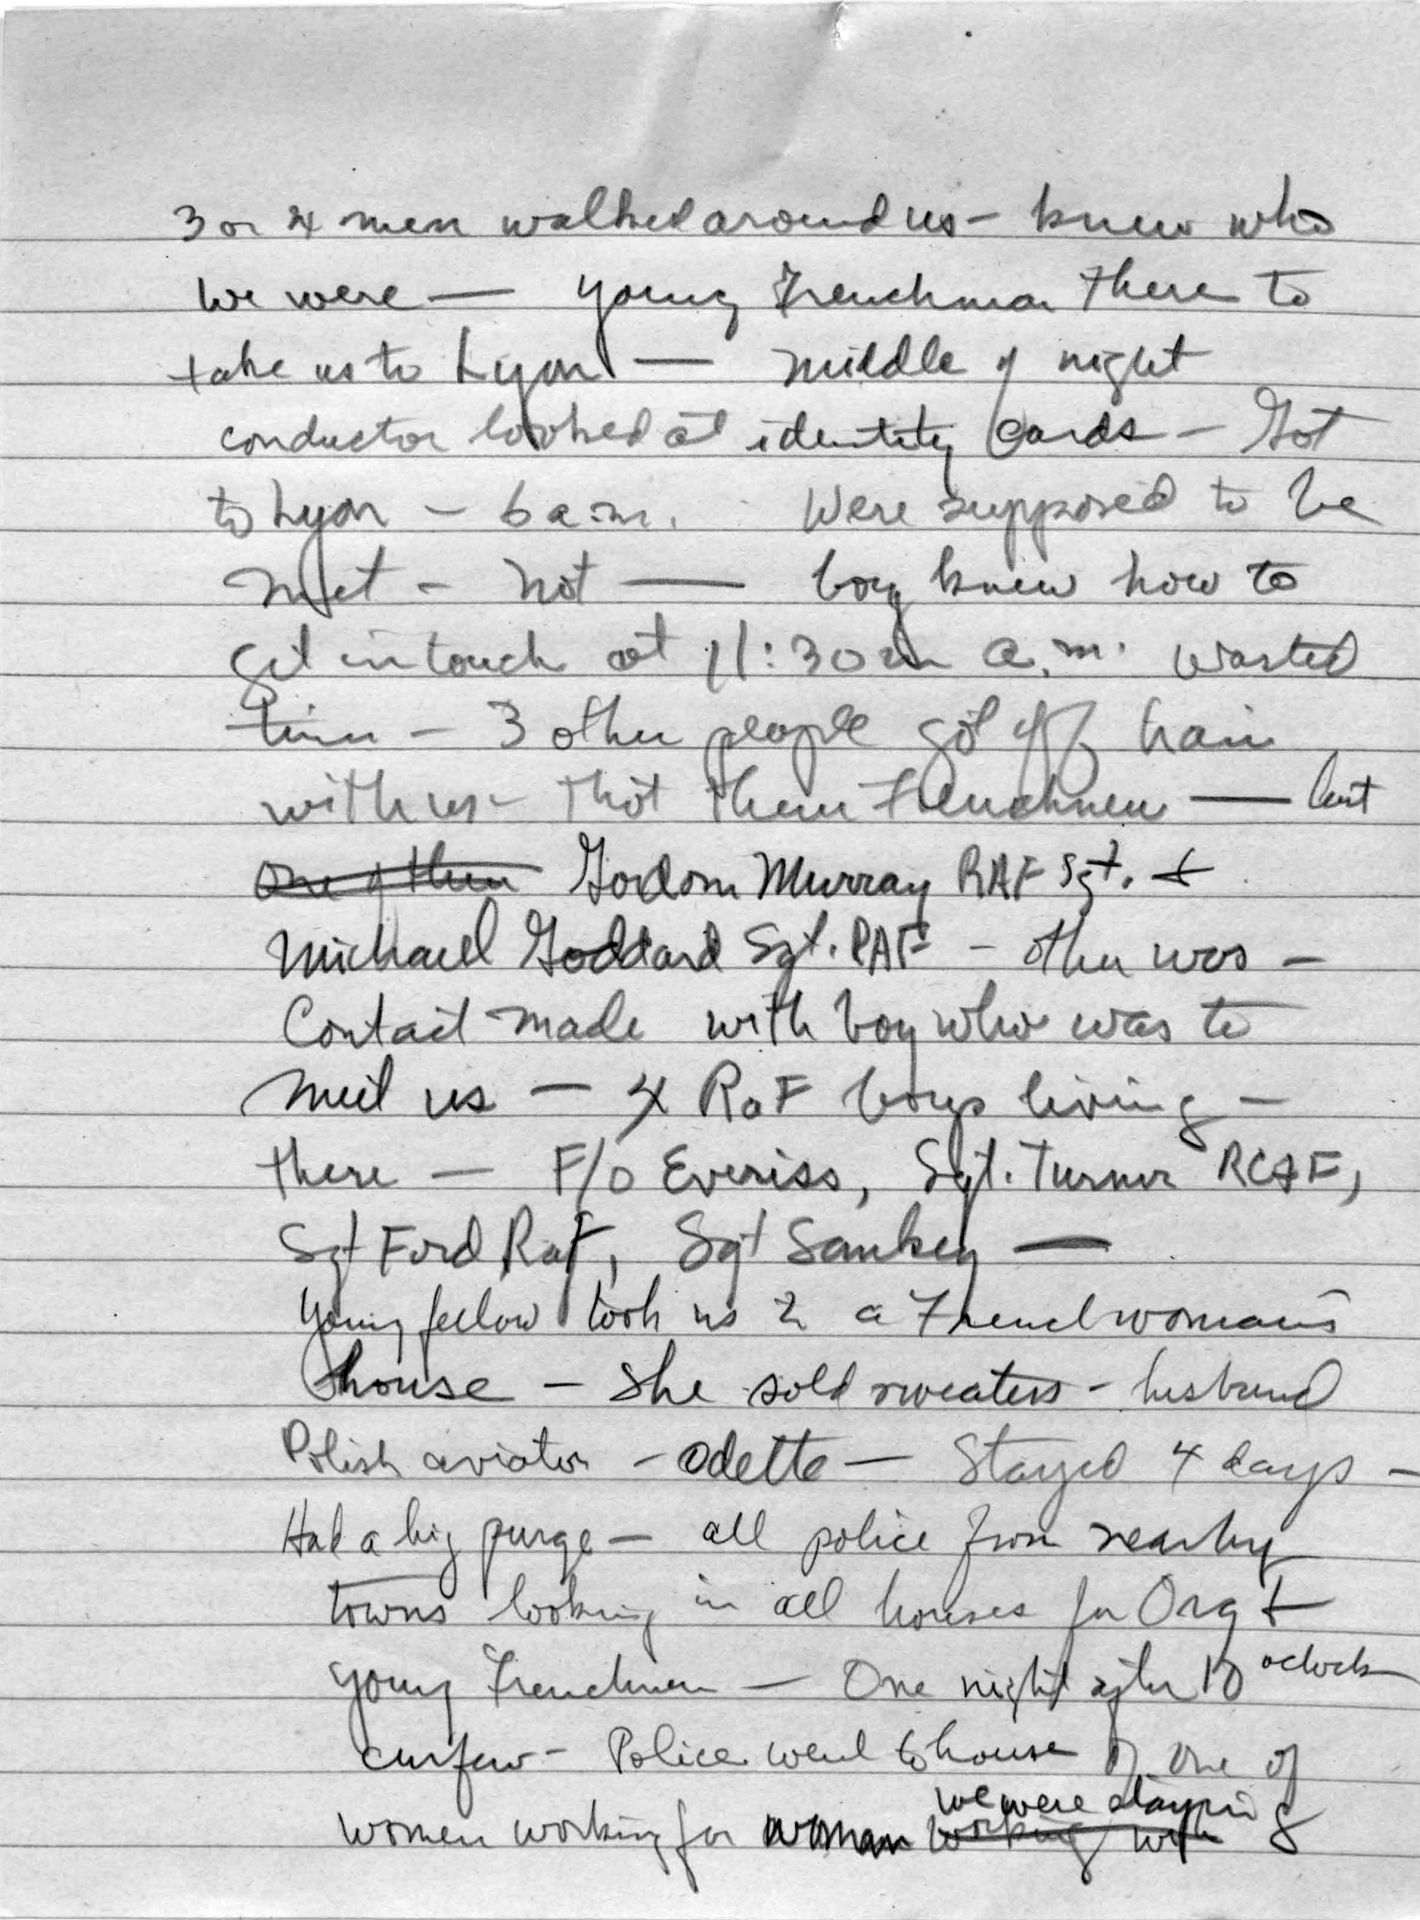 3 or 4 men walked around us - knew who
we were — young Frenchman there to
take us to Lyon — middle of night
conductor looked at identity cards - Got
to Lyon - 6 a.m. Were supposed to be
met - not — boy knew how to
get in touch at 11:30 a.m. wasted
time - 3 other people got off train
with us - thot them Frenchmen — but
one of them Gordon Murray RAF Sgt. +
Michael Goddard Sgt. RAF - other was -
Contact made with boy who was to
meet us - 4 RaF boys living -
there - F/O Everiss, Sgt. Turner RCAF,
Sgt Ford RaF, Sgt Sankey —
young fellow took us to a Frenchwoman's
house - She sold sweaters - husband
Polish aviator - Odette - Stayed 4 days -
Had a big purge - all police from nearby
towns looking in all houses for Org +
young Frenchmen - One night after 10 oclock
curfew - Police went to house of one of
we were staying
women working for woman working with &